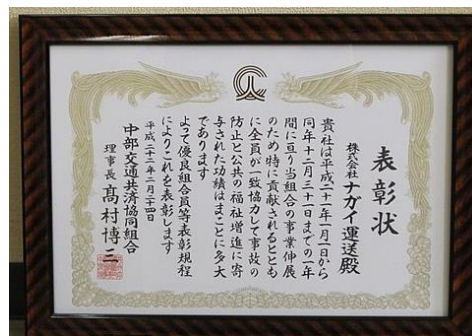 表彰状
株式会社 ナガイ運送殿
貴社は平成二十一年一月一日から
同年十二月三十一日までの一年
間に亘り当組合の事業伸展
のため特に貢献されるととも
に全員が一致協力して事故の
防止と公共の福祉増進に寄
与された功績はまことに多大
であります
よって優良組合員等表彰規程
によりこれを表彰します
平成二十二年二月二十四日
中部交通共済協同組合
理事長 髙村博三